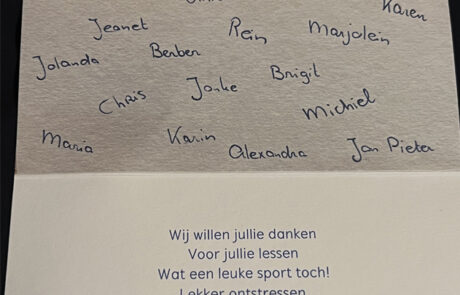 Karen
Jeanet Rein Marjolein
Jolanda Berber
Jonke Brigit
Chris Michiel
Maria Karin Alexandra Jan Pieter
Wij willen jullie danken
Voor jullie lessen
Wat een leuke sport toch!
Lekker ontstressen